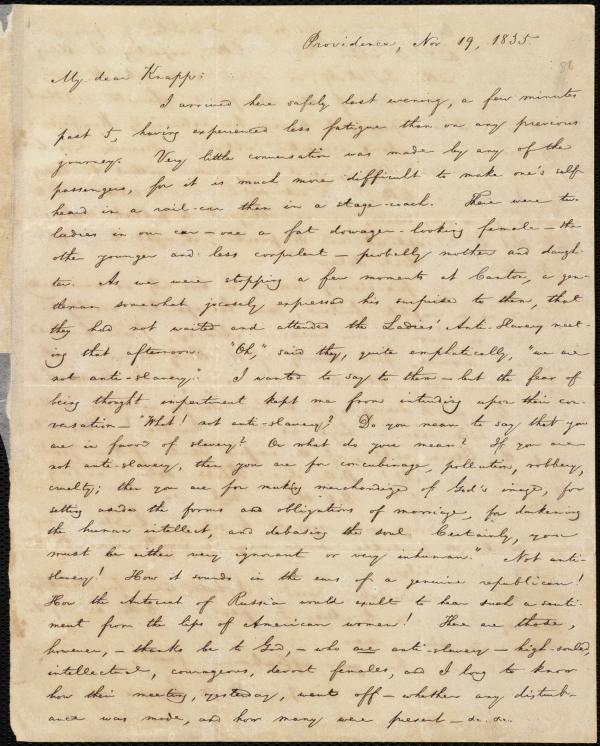 Providence, Nov. 19, 1835.
86
My dear Knapp:
I arrived here safely last evening, a few minutes
past 5, having experienced less fatigue than on any previous
journey. Very little conversation was made by any of the
passengers, for it is much more difficult to make one's self
heard in a rail-car than in a stage-coach. There were two
ladies in our car — one a fat dowager-looking female — the
other younger and less corpulent — probably mother and daugh-
ter. As we were stopping a few moments at Canton, a gen-
tleman somewhat jocosely expressed his surprise to them, that
they had not waited and attended the Ladies' Anti-Slavery meet-
ing that afternoon. "Oh," said they, quite emphatically, "we are
not anti-slavery." I wanted to say to them — but the fear of
being thought impertinent kept me from intruding upon their con-
versation — "What! not anti-slavery? Do you mean to say that you
are in favor of slavery? Or what do you mean? If you are
not anti-slavery, then you are for concubinage, pollution, robbery,
cruelty; then you are for making merchandize of God's image, for
setting aside the forms and obligations of marriage, for darkening
the human intellect, and debasing the soul. Certainly, you
must be either very ignorant or very inhuman." Not anti-
slavery! How it sounds in the ears of a genuine republican!
How the Autocrat of Russia would exult to hear such a senti-
ment from the lips of American women! There are those,
however, — thanks be to God, — who are anti-slavery — high-souled,
intellectual, courageous, devout females, and I long to know
how their meeting, yesterday, went off — whether any disturb-
ance was made, and how many were present — &c. &c.